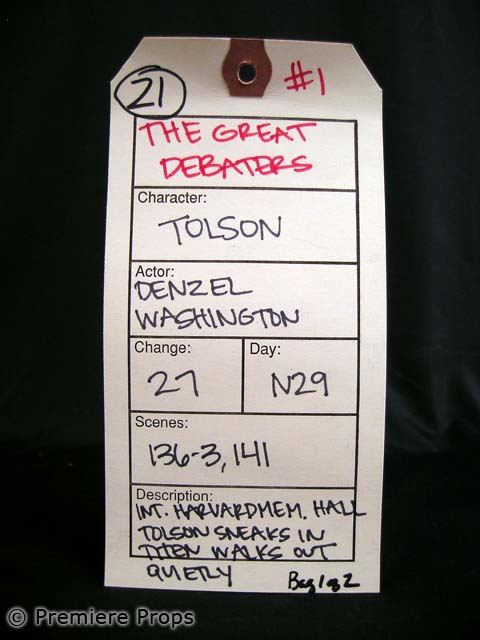 21
#1
THE GREAT
DEBATERS
Character:
TOLSON
Actor:
DENZEL
WASHINGTON
Change:
27
Day:
N29
Scenes:
136-3, 141
Description:
INT. HARVARD MEM. HALL
TOLSON SNEAKS IN
THEN WALKS OUT
QUIETLY
Bag 1 of 2
© Premiere Props